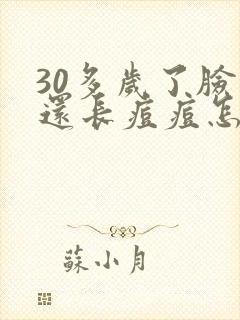 30多歲了臉
還長痘痘怎
蘇小月